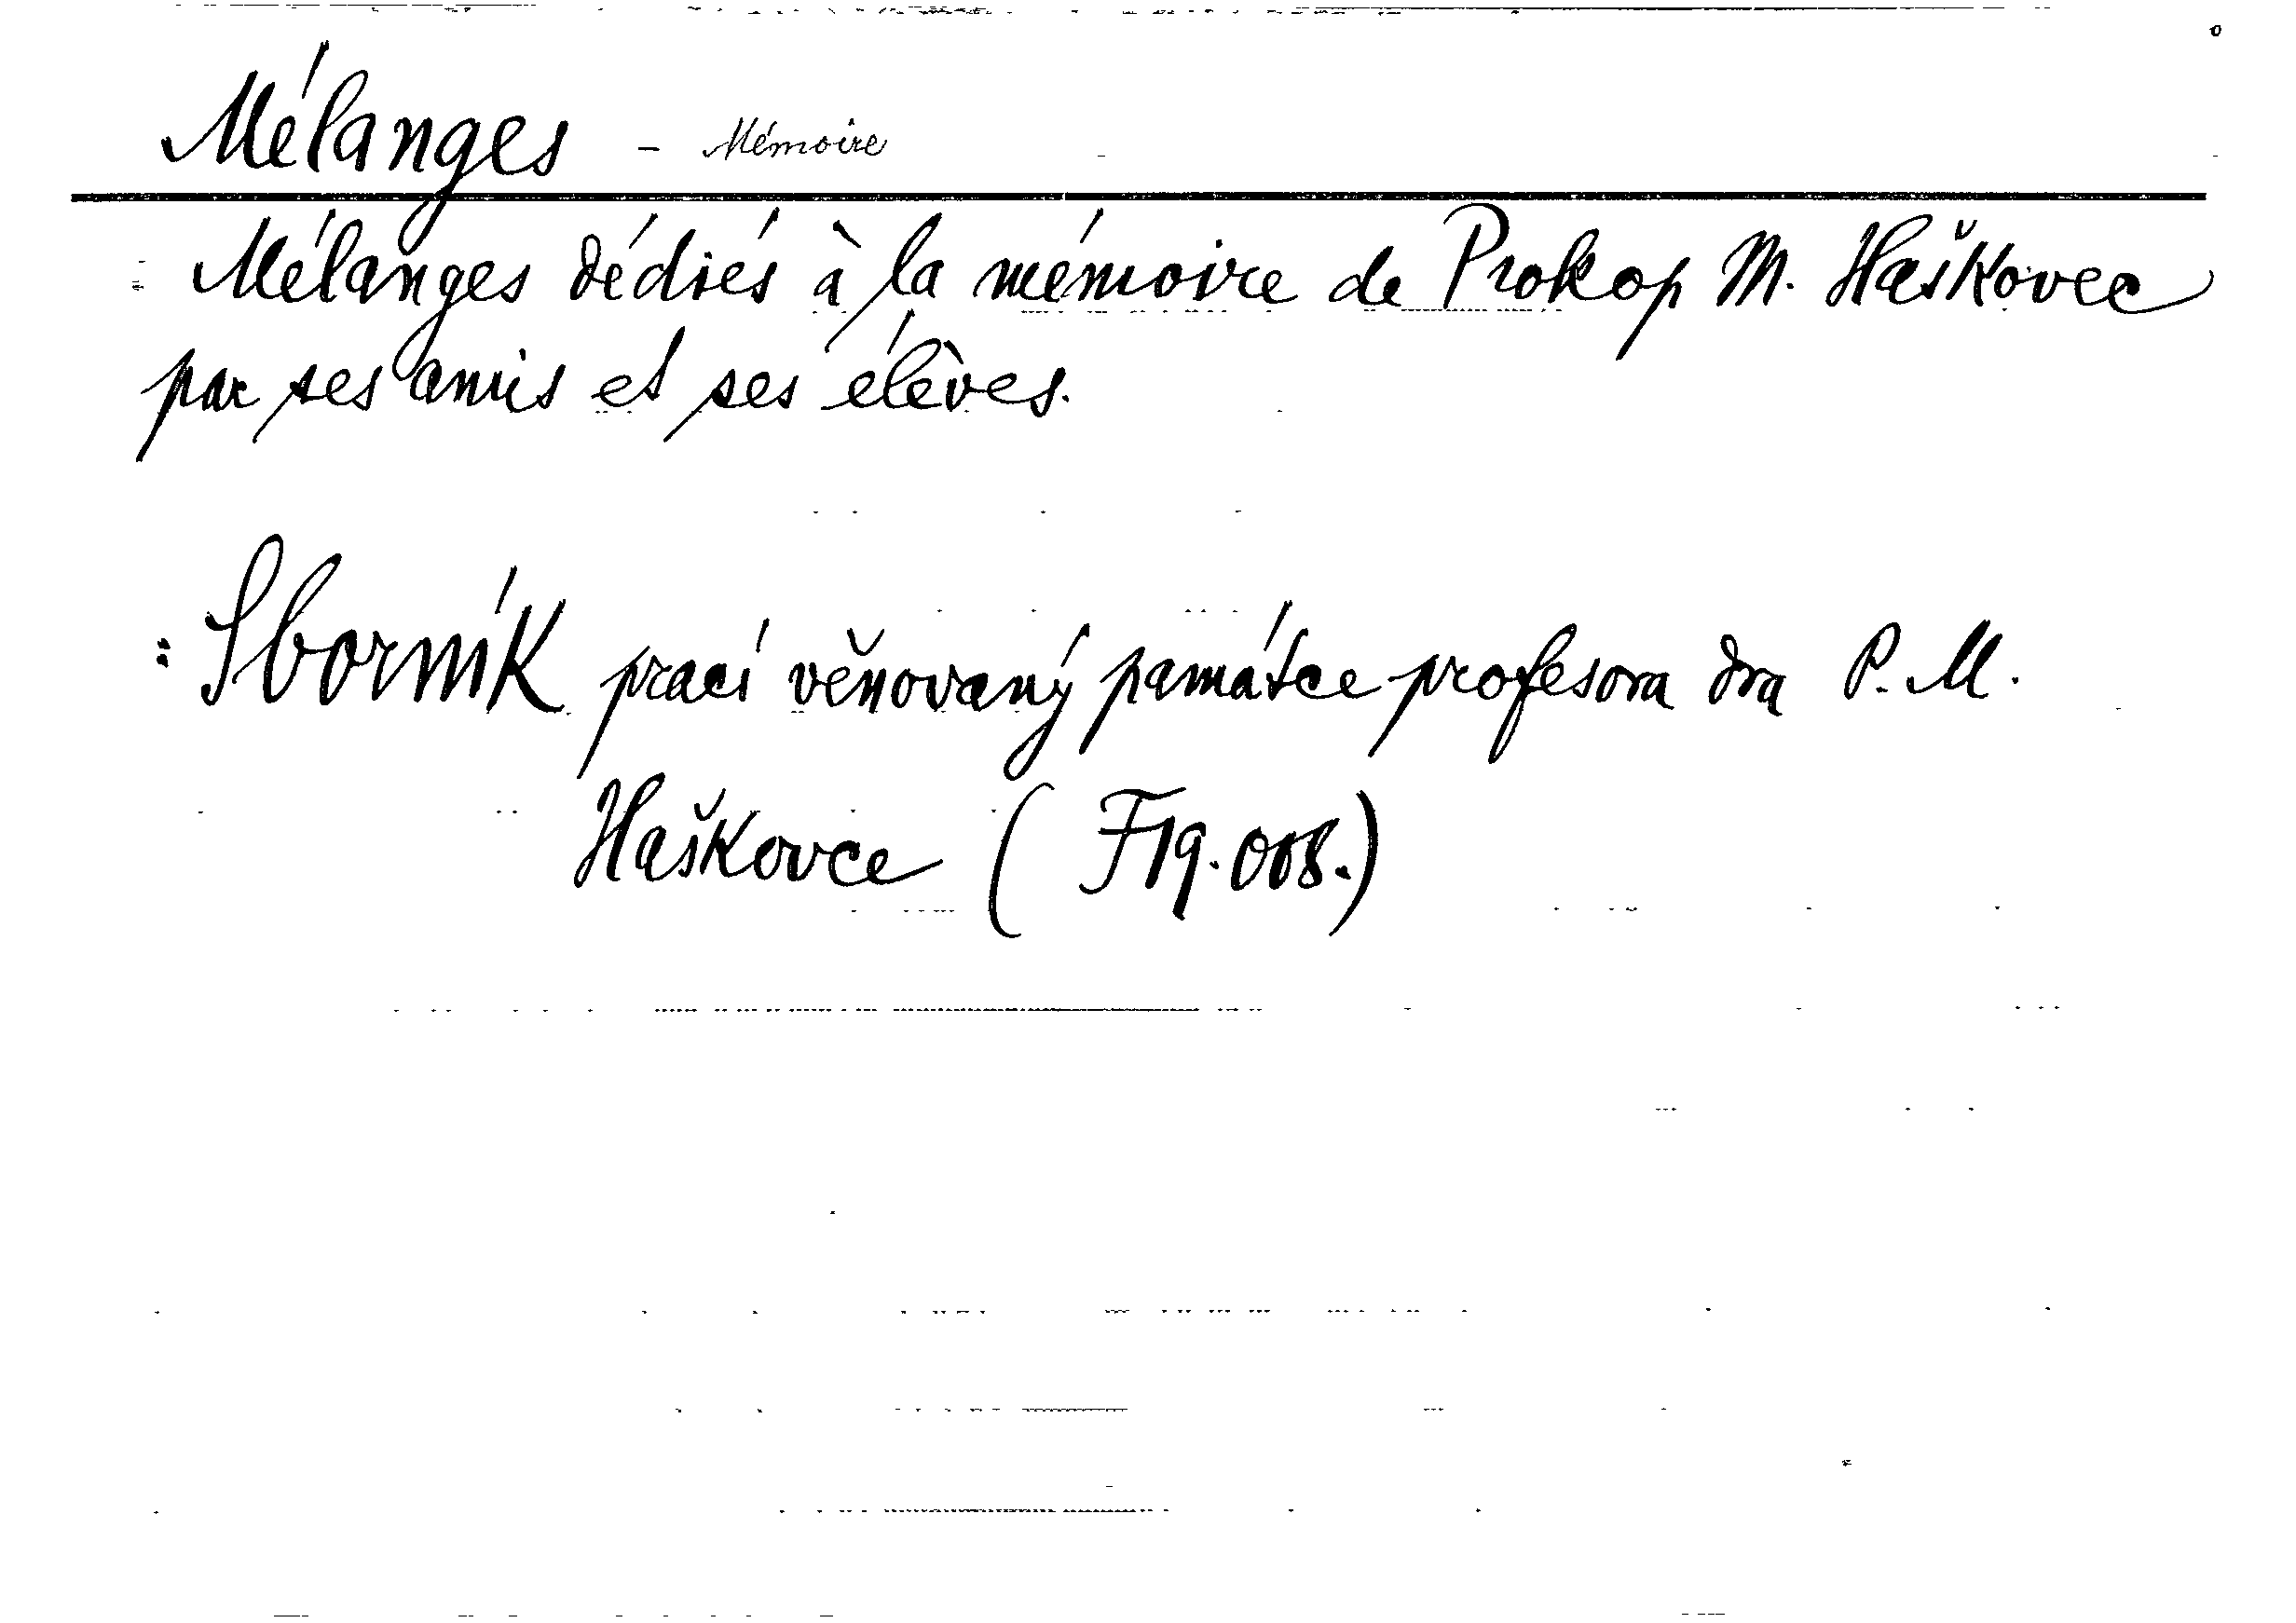 Mélanges - Mémoire
Mélanges dédiés à la mémoire de Prokop M. Haškovec
par ses amis et ses élèves.
: Sborník prací věnovaný památce profesora dra P. M.
Haškovce ( F19.008.)